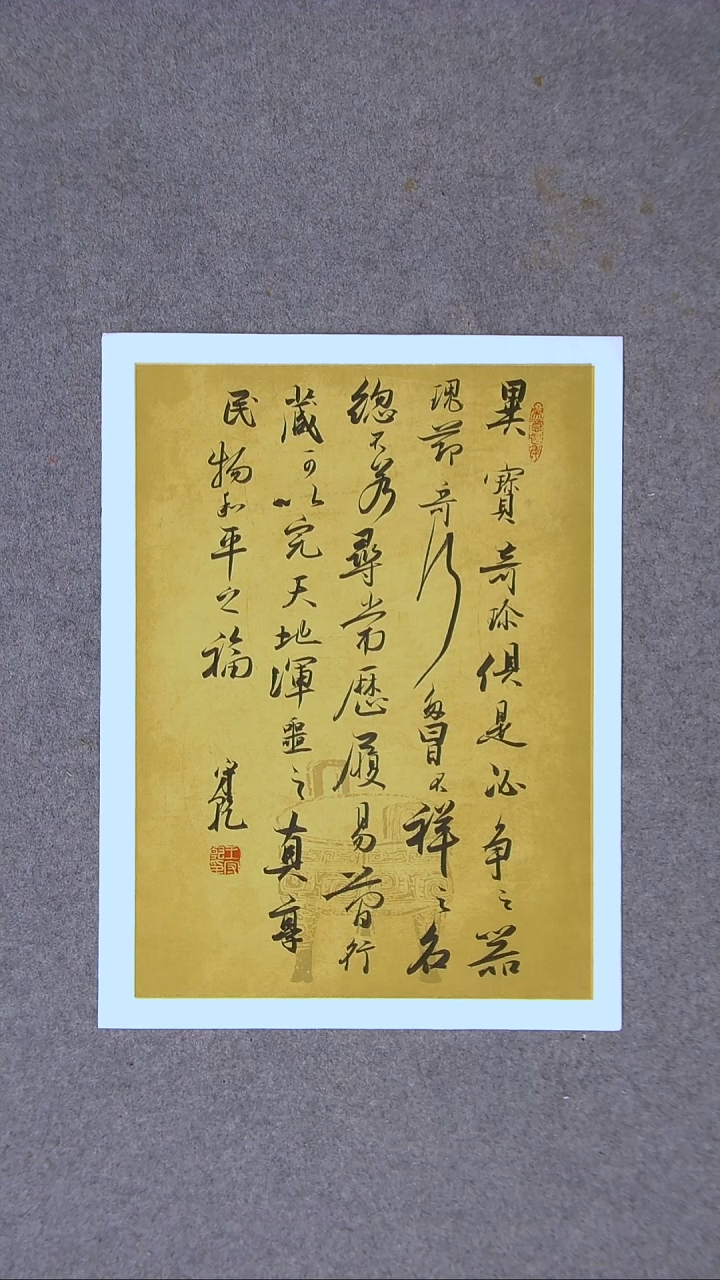 異寶奇珍俱是必争之器
瑰節奇行多冒不祥之名
總不若尋常歷履易簡行
藏可以完天地渾噩之真享
民物和平之福